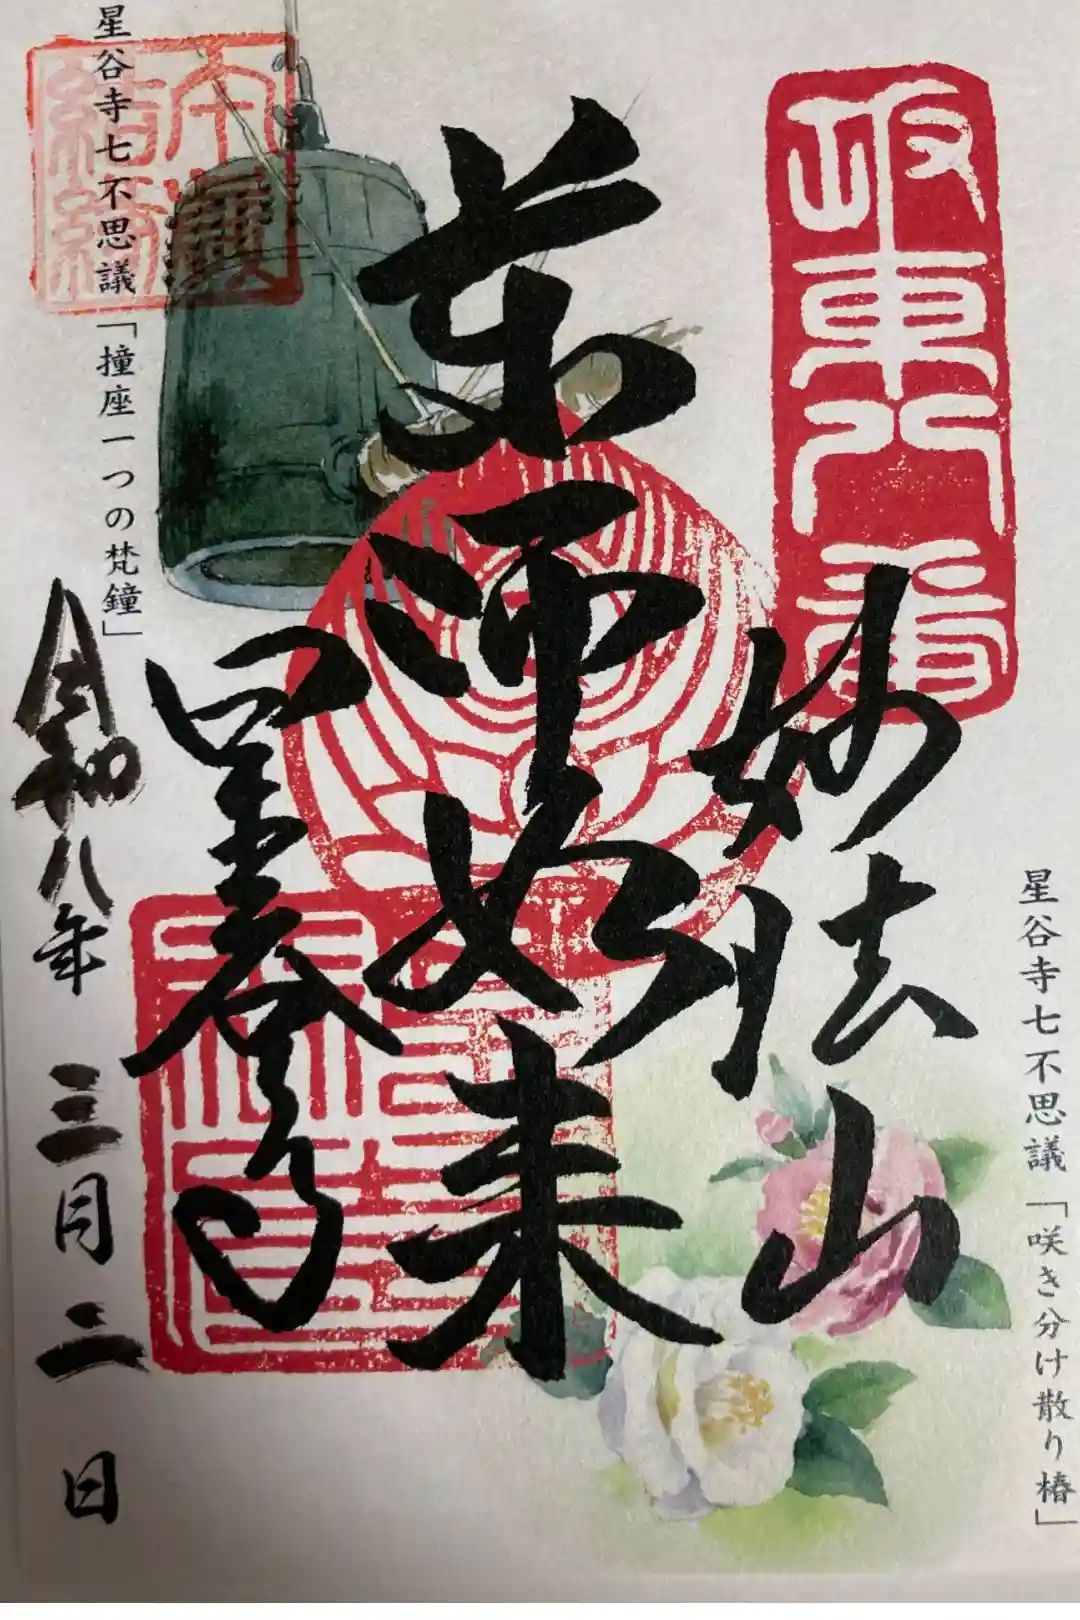 坂東八番
妙法山
薬師如来
星谷寺
令和八年 三月 二 日
星谷寺七不思議「咲き分け散り椿」
星谷寺七不思議「撞座一つの梵鐘」